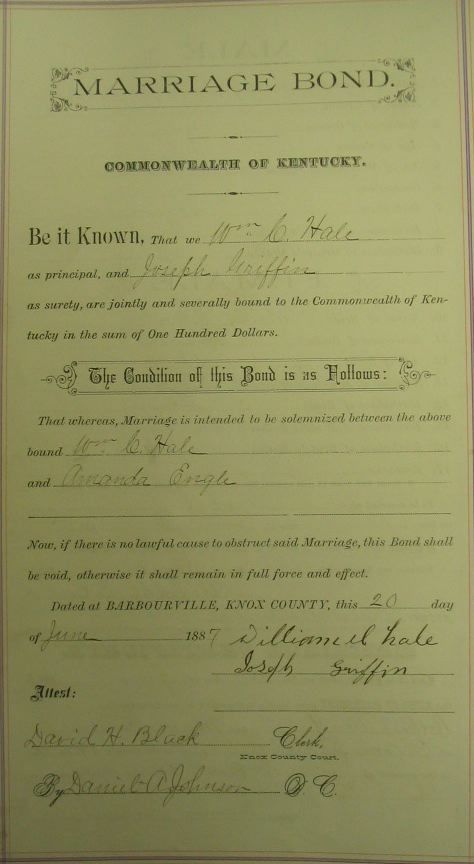 MARRIAGE BOND.
COMMONWEALTH OF KENTUCKY.
Be it Known, That we Wm C. Hale
as principal, and Joseph Griffin
as surety, are jointly and severally bound to the Commonwealth of Ken-
tucky in the sum of One Hundred Dollars.
The Condition of this Bond is as Follows:
That whereas, Marriage is intended to be solemnized between the above
bound Wm C. Hale
and Amanda Engle
Now, if there is no lawful cause to obstruct said Marriage, this Bond shall
be void, otherwise it shall remain in full force and effect.
Dated at BARBOURVILLE, KNOX COUNTY, this 20 day
of June 1887 William C hale
Joseph Griffin
Attest:
David H. Black Clerk,
Knox County Court.
By Daniel A Johnson D. C.